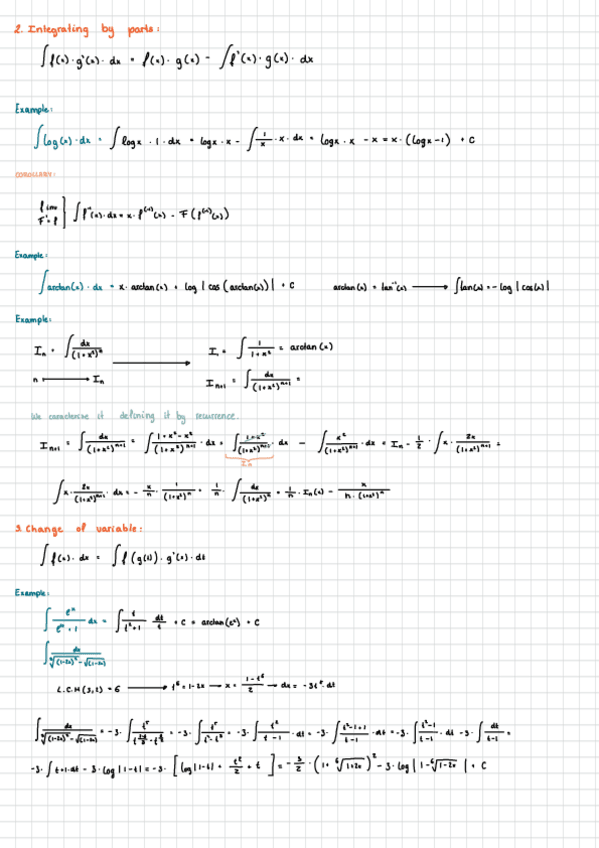 2. Integrating by parts:
∫f(x)·g'(x)·dx = f(x)·g(x) - ∫f'(x)·g(x)·dx
Example:
∫log(x)·dx = ∫logx · 1·dx = logx·x - ∫1/x·x·dx = logx·x - x = x·(logx-1) + C
COROLLARY:
∫f⁻¹(x)·dx = x·f⁽⁻¹⁾(x) - F(f⁽⁻¹⁾(x))
F'=f
Example:
∫arctan(x)·dx = x·arctan(x) + log|cos(arctan(x))| + C arctan(x) = tan⁻¹(x) → ∫tan(x) = -log|cos(x)|
Example:
Iₙ = ∫dx/(1+x²)ⁿ → I₁ = ∫1/(1+x²) = arctan(x)
n → Iₙ Iₙ₊₁ = ∫dx/(1+x²)ⁿ⁺¹ =
We caracterise it defining it by recurrence.
Iₙ₊₁ = ∫dx/(1+x²)ⁿ⁺¹ = ∫(1+x²-x²)/(1+x²)ⁿ⁺¹·dx = ∫(1+x²)/(1+x²)ⁿ⁺¹·dx - ∫x²/(1+x²)ⁿ⁺¹·dx = Iₙ - 1/2·∫x·2x/(1+x²)ⁿ⁺¹ =
Iₙ
∫x·2x/(1+x²)ⁿ⁺¹·dx = -x/n·1/(1+x²)ⁿ + 1/n·∫dx/(1+x²)ⁿ = 1/n·Iₙ(x) - x/(n·(1+x²)ⁿ)
3. Change of variable:
∫f(x)·dx = ∫f(g(t))·g'(x)·dt
Example:
∫eˣ/(e²ˣ+1) dx = ∫t/(t²+1) dt/t + C = arctan(eˣ) + C
∫dx/(∛(1-2x)² - √(1-2x))
L.C.M(3,2) = 6 → t⁶ = 1-2x → x = (1-t⁶)/2 → dx = -3t⁵·dt
∫dx/(∛(1-2x)² - √(1-2x)) = -3·∫t⁵/(t⁴-t³) = -3·∫t²/(t-1)·dt = -3·∫(t²-1+1)/(t-1)·dt = -3·∫(t²-1)/(t-1)·dt -3·∫dt/(t-1) =
-3·∫t+1·dt - 3·log|1-t| = -3·[log|1-t| + t²/2 + t] = -3/2·(1+⁶√(1+2x))² - 3·log|1-⁶√(1-2x)| + C